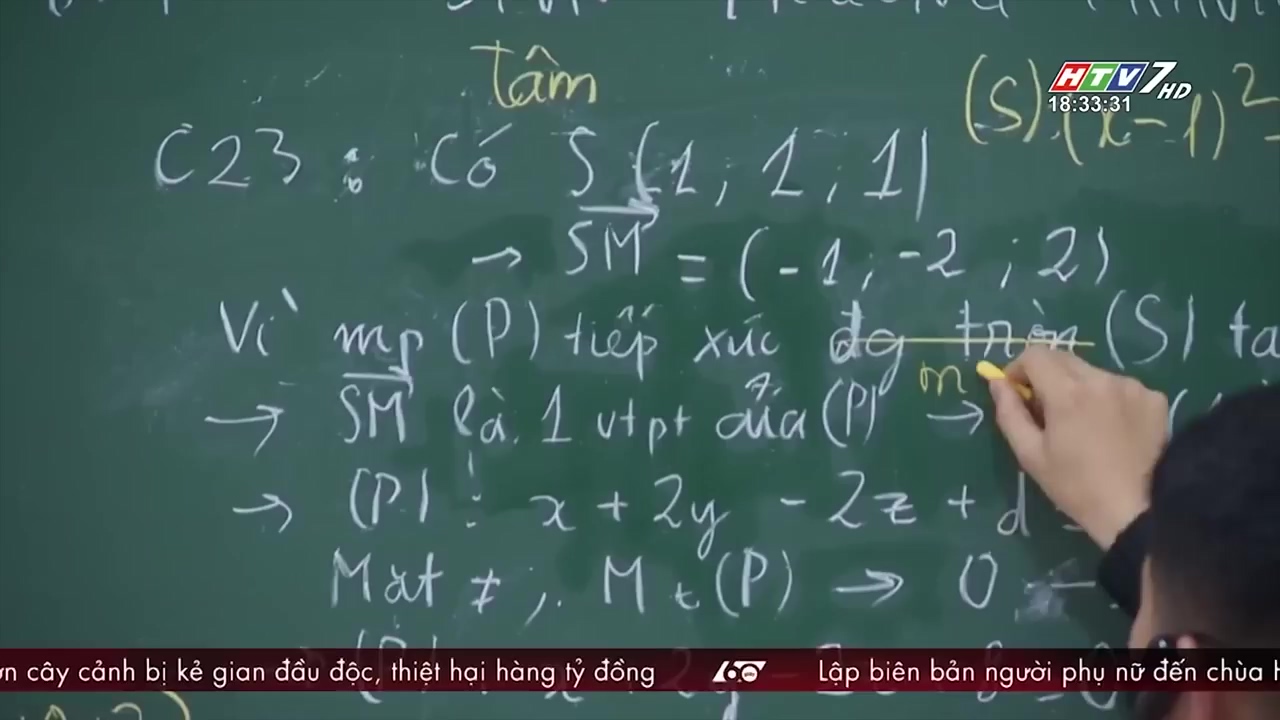 tâm
(S). (x-1)²
HTV7 HD
18:33:31
C23 : Có S (1 ; 1 ; 1)
→ SM = (-1 ; -2 ; 2)
Vì mp (P) tiếp xúc đg tròn (S)
m
→ SM là 1 vtpt của (P) →
→ (P) : x + 2y - 2z + d
Mặt ≠ ; M ∈ (P) → 0
cây cảnh bị kẻ gian đầu độc, thiệt hại hàng tỷ đồng 60 Lập biên bản người phụ nữ đến chùa